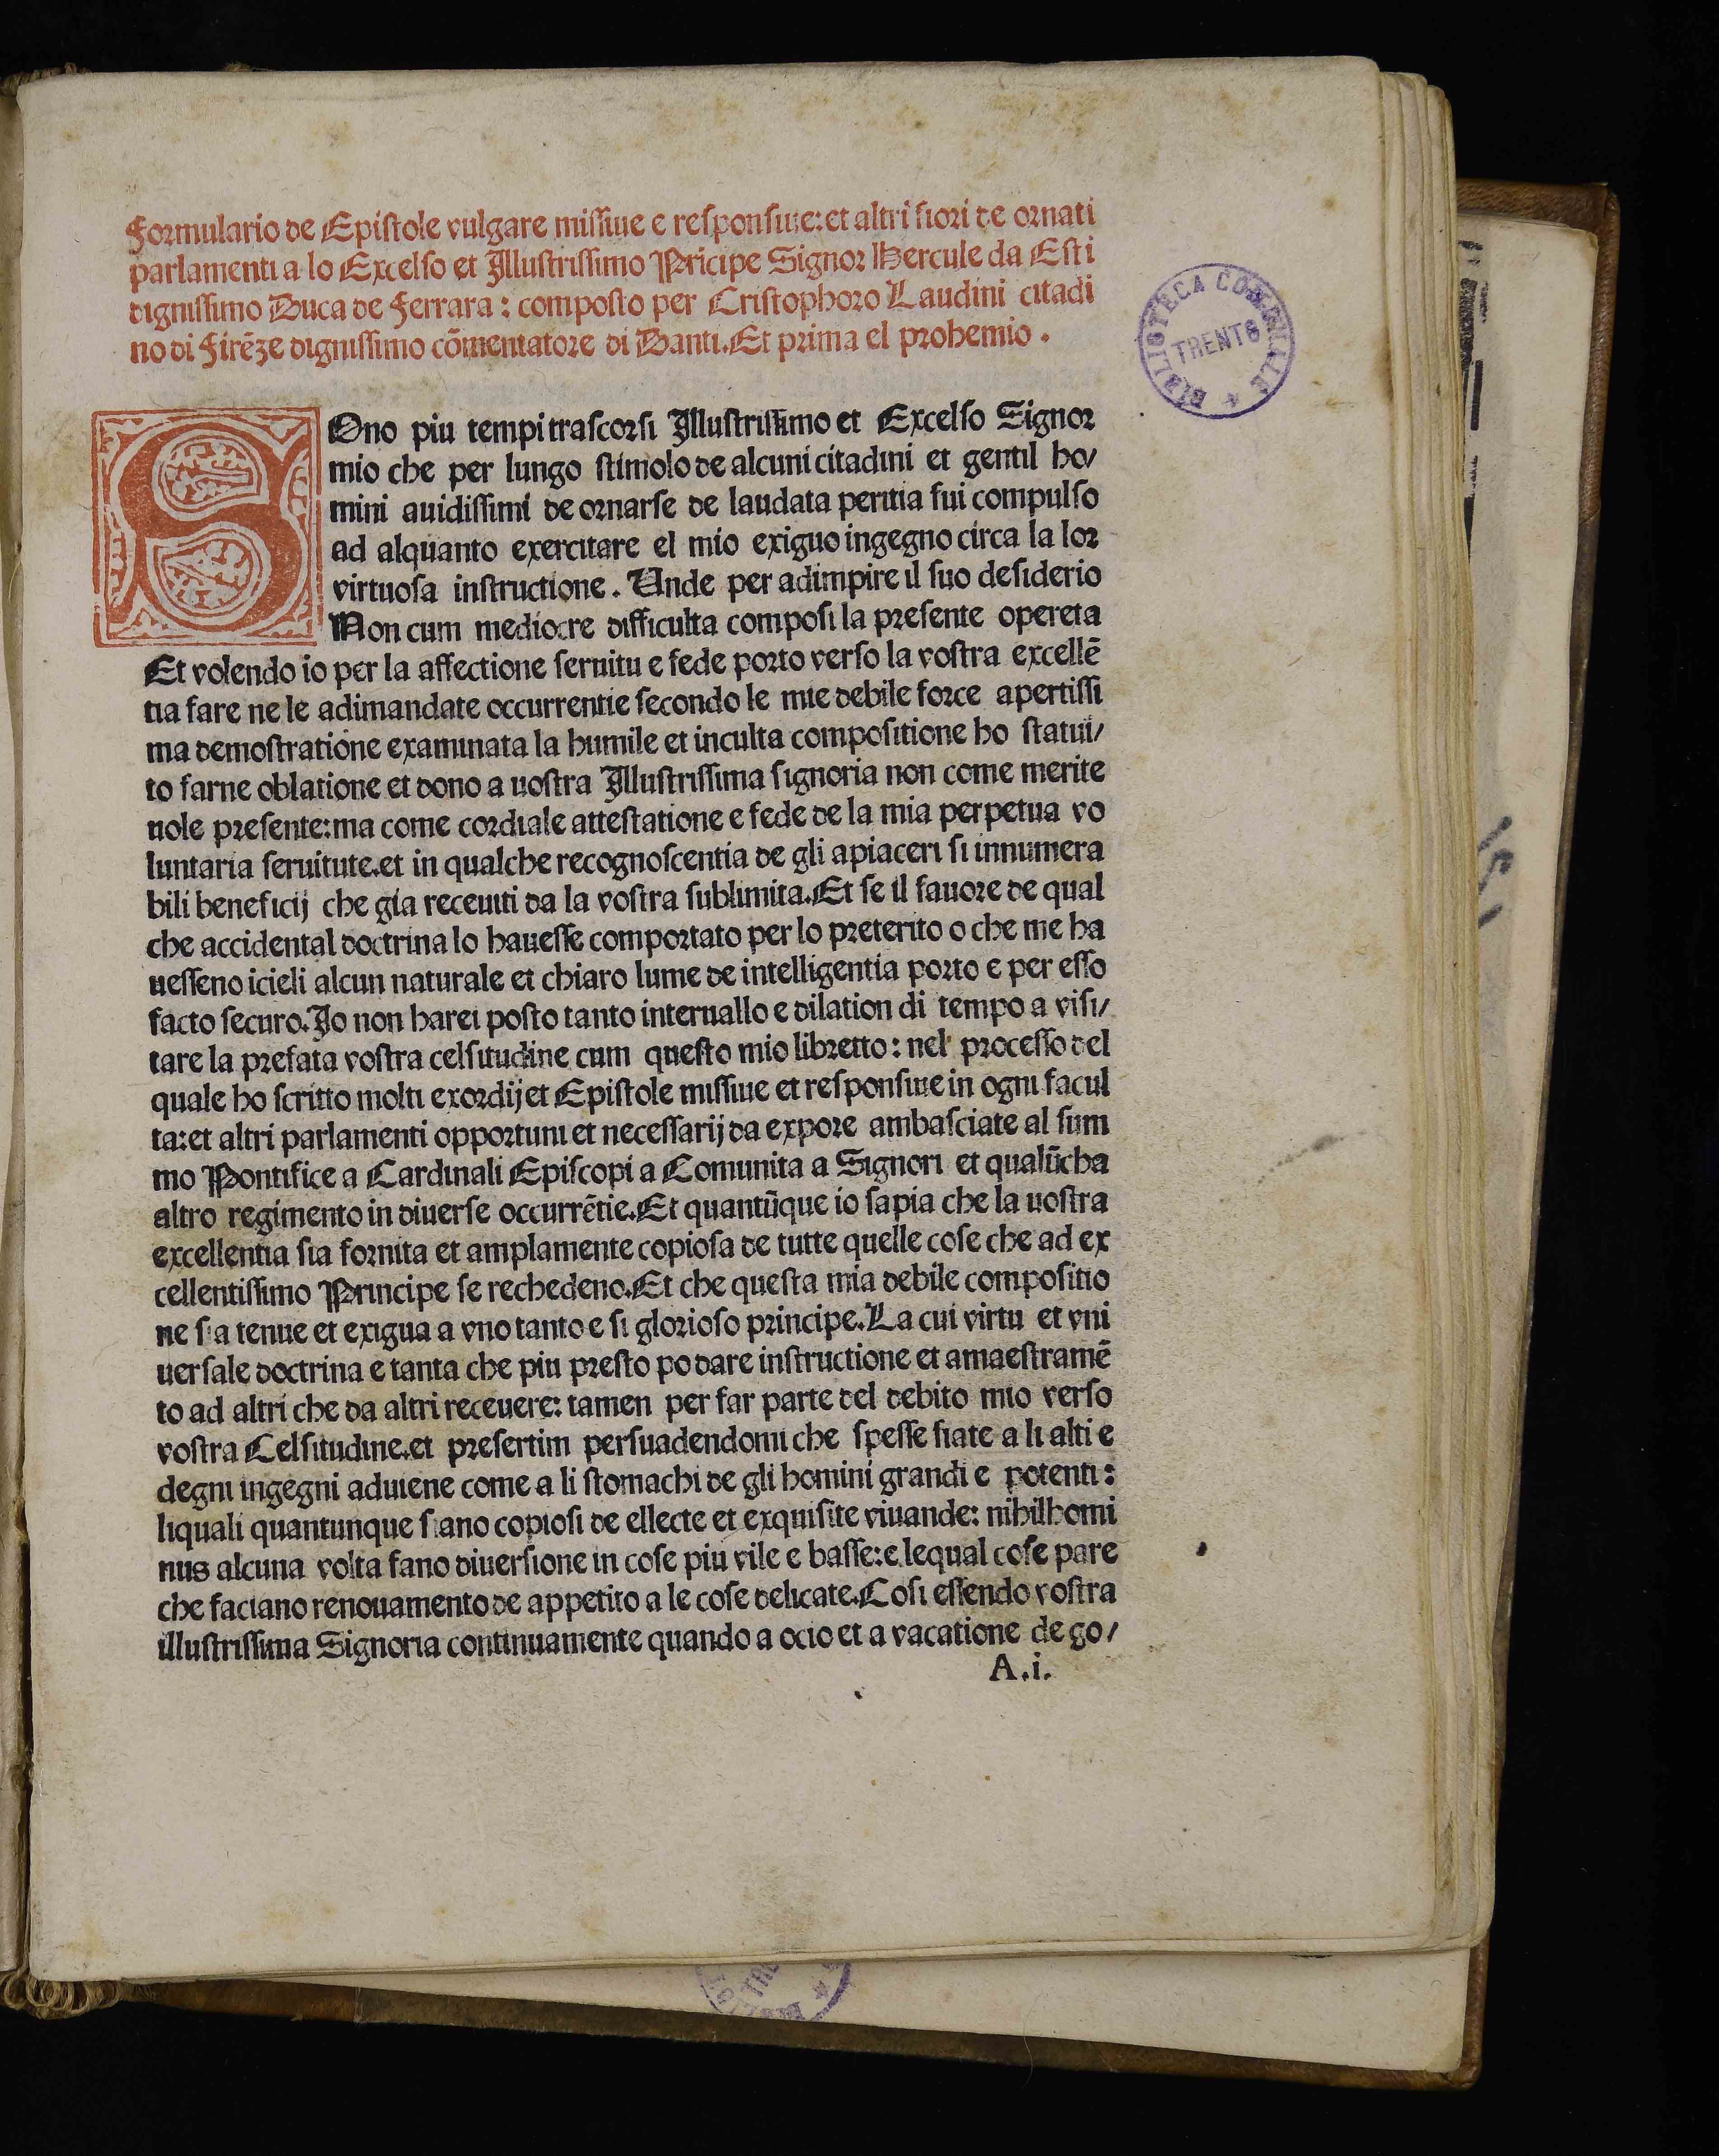 Formulario de Epistole vulgare missiue e responsiue: et altri fiori de ornati
parlamenti a lo Excelso et Illustrissimo Pricipe Signor Hercule da Esti
dignissimo Duca de Ferrara : composto per Cristophoro Laudini citadi
no di Firēze dignissimo cōmentatore di Danti. Et prima el prohemio .
BIBLIOTECA COMUNALE
TRENTO
SOno piu tempi trascorsi Illustrissimo et Excelso Signor
mio che per lungo stimolo de alcuni citadini et gentil ho/
mini auidissimi de ornarse de laudata peritia fui compulso
ad alquanto exercitare el mio exiguo ingegno circa la lor
virtuosa instructione . Unde per adimpire il suo desiderio
Non cum mediocre difficulta composi la presente opereta
Et volendo io per la affectione seruitu e fede porto verso la vostra excellē
tia fare ne le adimandate occurrentie secondo le mie debile force apertissi
ma demostratione examinata la humile et inculta compositione ho statui/
to farne oblatione et dono a uostra Illustrissima signoria non come merite
uole presente: ma come cordiale attestatione e fede de la mia perpetua vo
luntaria seruitute. et in qualche recognoscentia de gli apiaceri si innumera
bili beneficij che gia receuiti da la vostra sublimita. Et se il fauore de qual
che accidental doctrina lo hauesse comportato per lo preterito o che me ha
uesseno icieli alcun naturale et chiaro lume de intelligentia porto e per esso
facto securo. Io non harei posto tanto interuallo e dilation di tempo a visi/
tare la prefata vostra celsitudine cum questo mio libretto : nel processo del
quale ho scritto molti exordij et Epistole missiue et responsiue in ogni facul
ta: et altri parlamenti opportuni et necessarij da expore ambasciate al sum
mo Pontifice a Cardinali Episcopi a Comunita a Signori et qualūcha
altro regimento in diuerse occurrētie. Et quantūque io sapia che la uostra
excellentia sia fornita et amplamente copiosa de tutte quelle cose che ad ex
cellentissimo Principe se rechedeno. Et che questa mia debile compositio
ne sia tenue et exigua a vno tanto e si glorioso principe. La cui virtu et vni
uersale doctrina e tanta che piu presto po dare instructione et amaestramē
to ad altri che da altri receuere: tamen per far parte del debito mio verso
vostra Celsitudine. et presertim persuadendomi che spesse fiate a li alti e
degni ingegni aduiene come a li stomachi de gli homini grandi e potenti :
liquali quantunque siano copiosi de ellecte et exquisite viuande: nihilhomi
nus alcuna volta fano diuersione in cose piu vile e basse: e lequal cose pare
che faciano renouamento de appetito a le cose delicate. Cosi essendo vostra
illustrissima Signoria continuamente quando a ocio et a vacatione de go/
A.i.